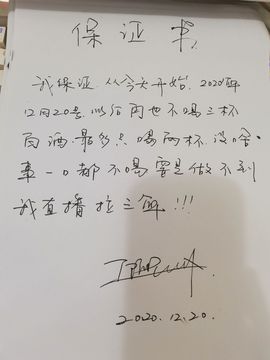 保证书
我保证从今天开始.2020年
12月20号.以后再也不喝三杯
白酒.最多只喝两杯.没啥
事一口都不喝要是做不到
我直播拉三
我!!!
2020.12.20.